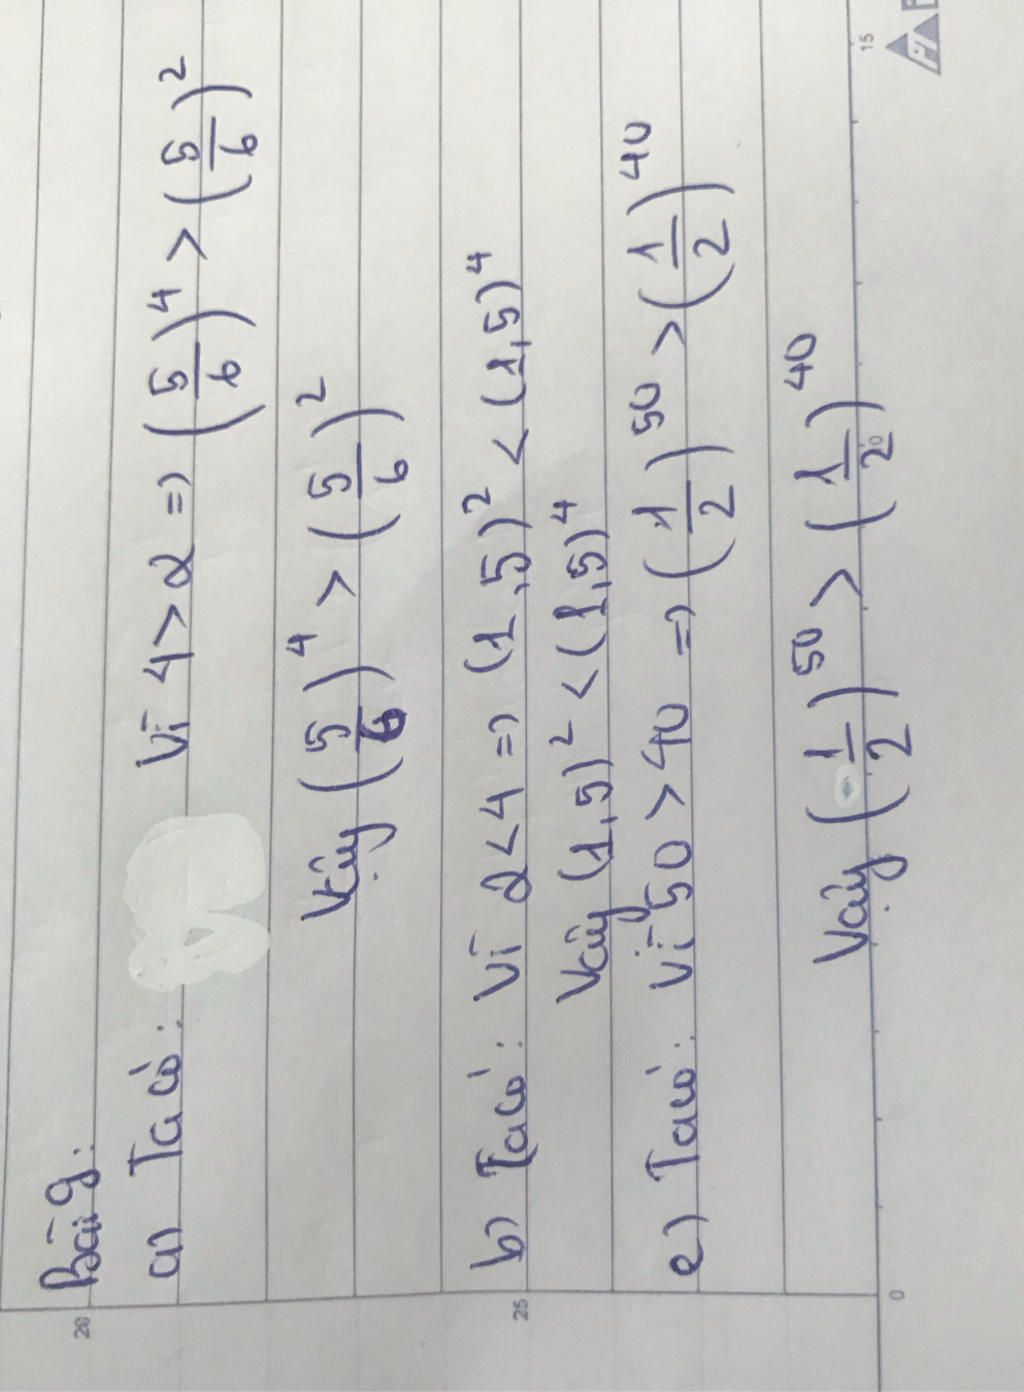 Bài 9:
a) Ta có: Vì 4 > 2 => (5/6)^4 > (5/6)^2
Vậy (5/6)^4 > (5/6)^2
b) Ta có: Vì 2 < 4 => (1,5)^2 < (1,5)^4
Vậy (1,5)^2 < (1,5)^4
c) Ta có: Vì 50 > 40 => (1/2)^50 > (1/2)^40
Vậy (1/2)^50 > (1/2)^40
20
25
0
15